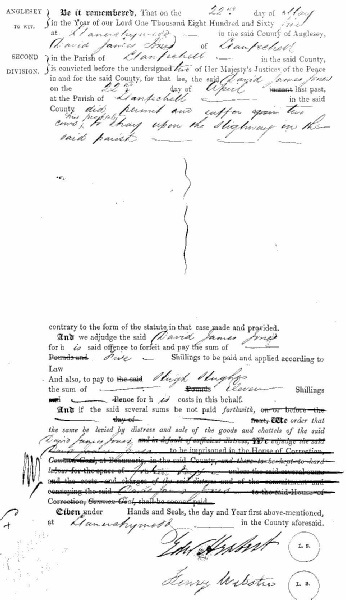 ANGLESEY Be it remembered, That on the 22nd day of May
TO WIT. in the Year of our Lord One Thousand Eight Hundred and Sixty
at Llanerchymedd in the said County of Anglesey,
David James Jones of Llanfechell
SECOND in the Parish of Llanfechell in the said County,
DIVISION. is convicted before the undersigned two of Her Majesty's Justices of the Peace
in and for the said County, for that he, the said David James Jones
on the 22nd day of April instant last past,
at the Parish of Llanfechell in the said
County did permit and suffer two
cows, to stray upon the Highway in the
said parish
contrary to the form of the statute in that case made and provided.
And we adjudge the said David James Jones
for h is said offence to forfeit and pay the sum of
Pounds and Five Shillings to be paid and applied according to
Law
And also, to pay to the said Hugh Hughes
the sum of Pounds Eleven Shillings
and Pence for h is costs in this behalf.
And if the said several sums be not paid forthwith, on or before the
day of next, We order that
the same be levied by distress and sale of the goods and chattels of the said
David James Jones, and in default of sufficient distress, We adjudge the said
to be imprisoned in the House of Correction,
in the said County, and there to be kept to hard
labor for the space of
and the costs and charges of
conveying the said to the said House of
Correction, shall be sooner paid.
Given under Hands and Seals, the day and Year first above-mentioned,
at Llanerchymedd in the County aforesaid.
Edw Herbert L. S.
Henry Webster L. S.